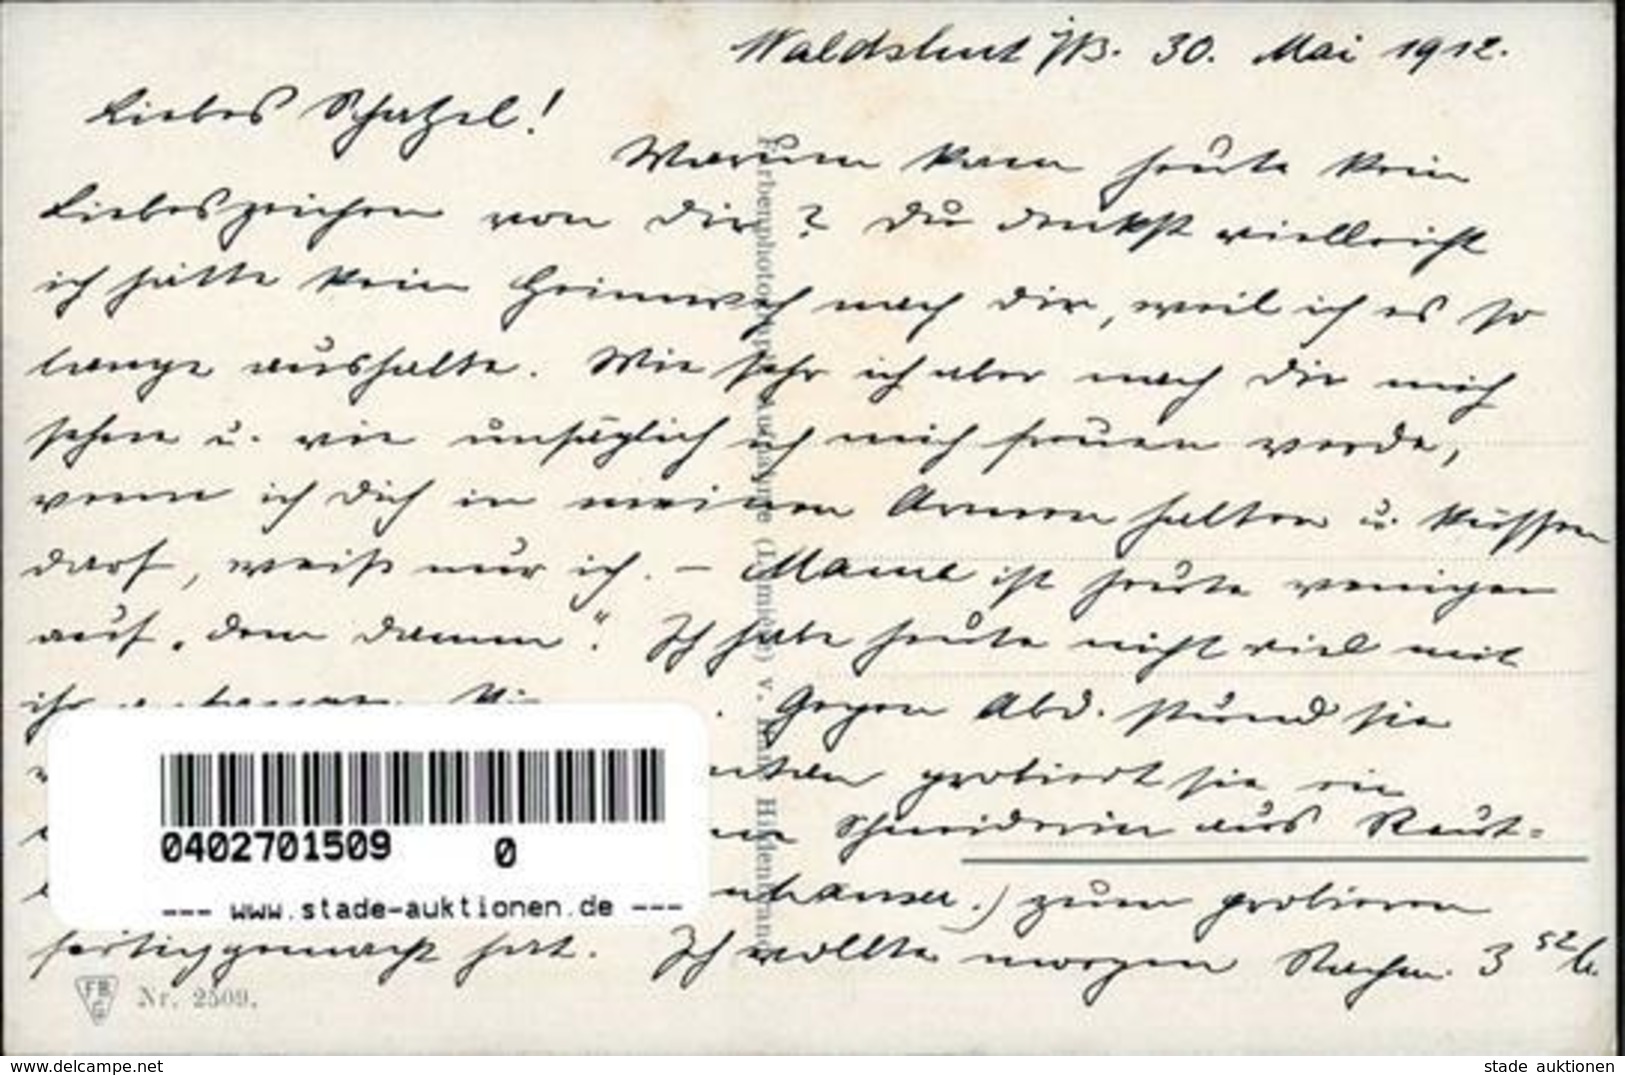 Waldshut i/B. 30. Mai 1912.
Liebes Schatzel!
Warum kam heute kein
Liebeszeichen von Dir? Du denkst vielleicht
ich hätte kein Heimweh nach Dir, weil ich es so
lange aushalte. Wie sehr ich aber nach Dir mich
sehne u. wie unsäglich ich mich freuen werde,
wenn ich Dich in meinen Armen halten u. küssen
darf, weiß nur ich. – Mama ist heute weniger
auf „dem Damm“. Ich habe heute nicht viel mit
ihr
. Gegen Abd. stund sie
probiert sie ein
Schneiderin aus
) zum probieren
fertiggemacht hat. Ich wollte morgen Nachm. 3 52 h.
Farbenphotogr. Aufnahme (Lumière) v. Hans Hildenbrand
FBG
Nr. 2509.
0402701509 0
--- www.stade-auktionen.de ---
www.delcampe.net
stade auktionen